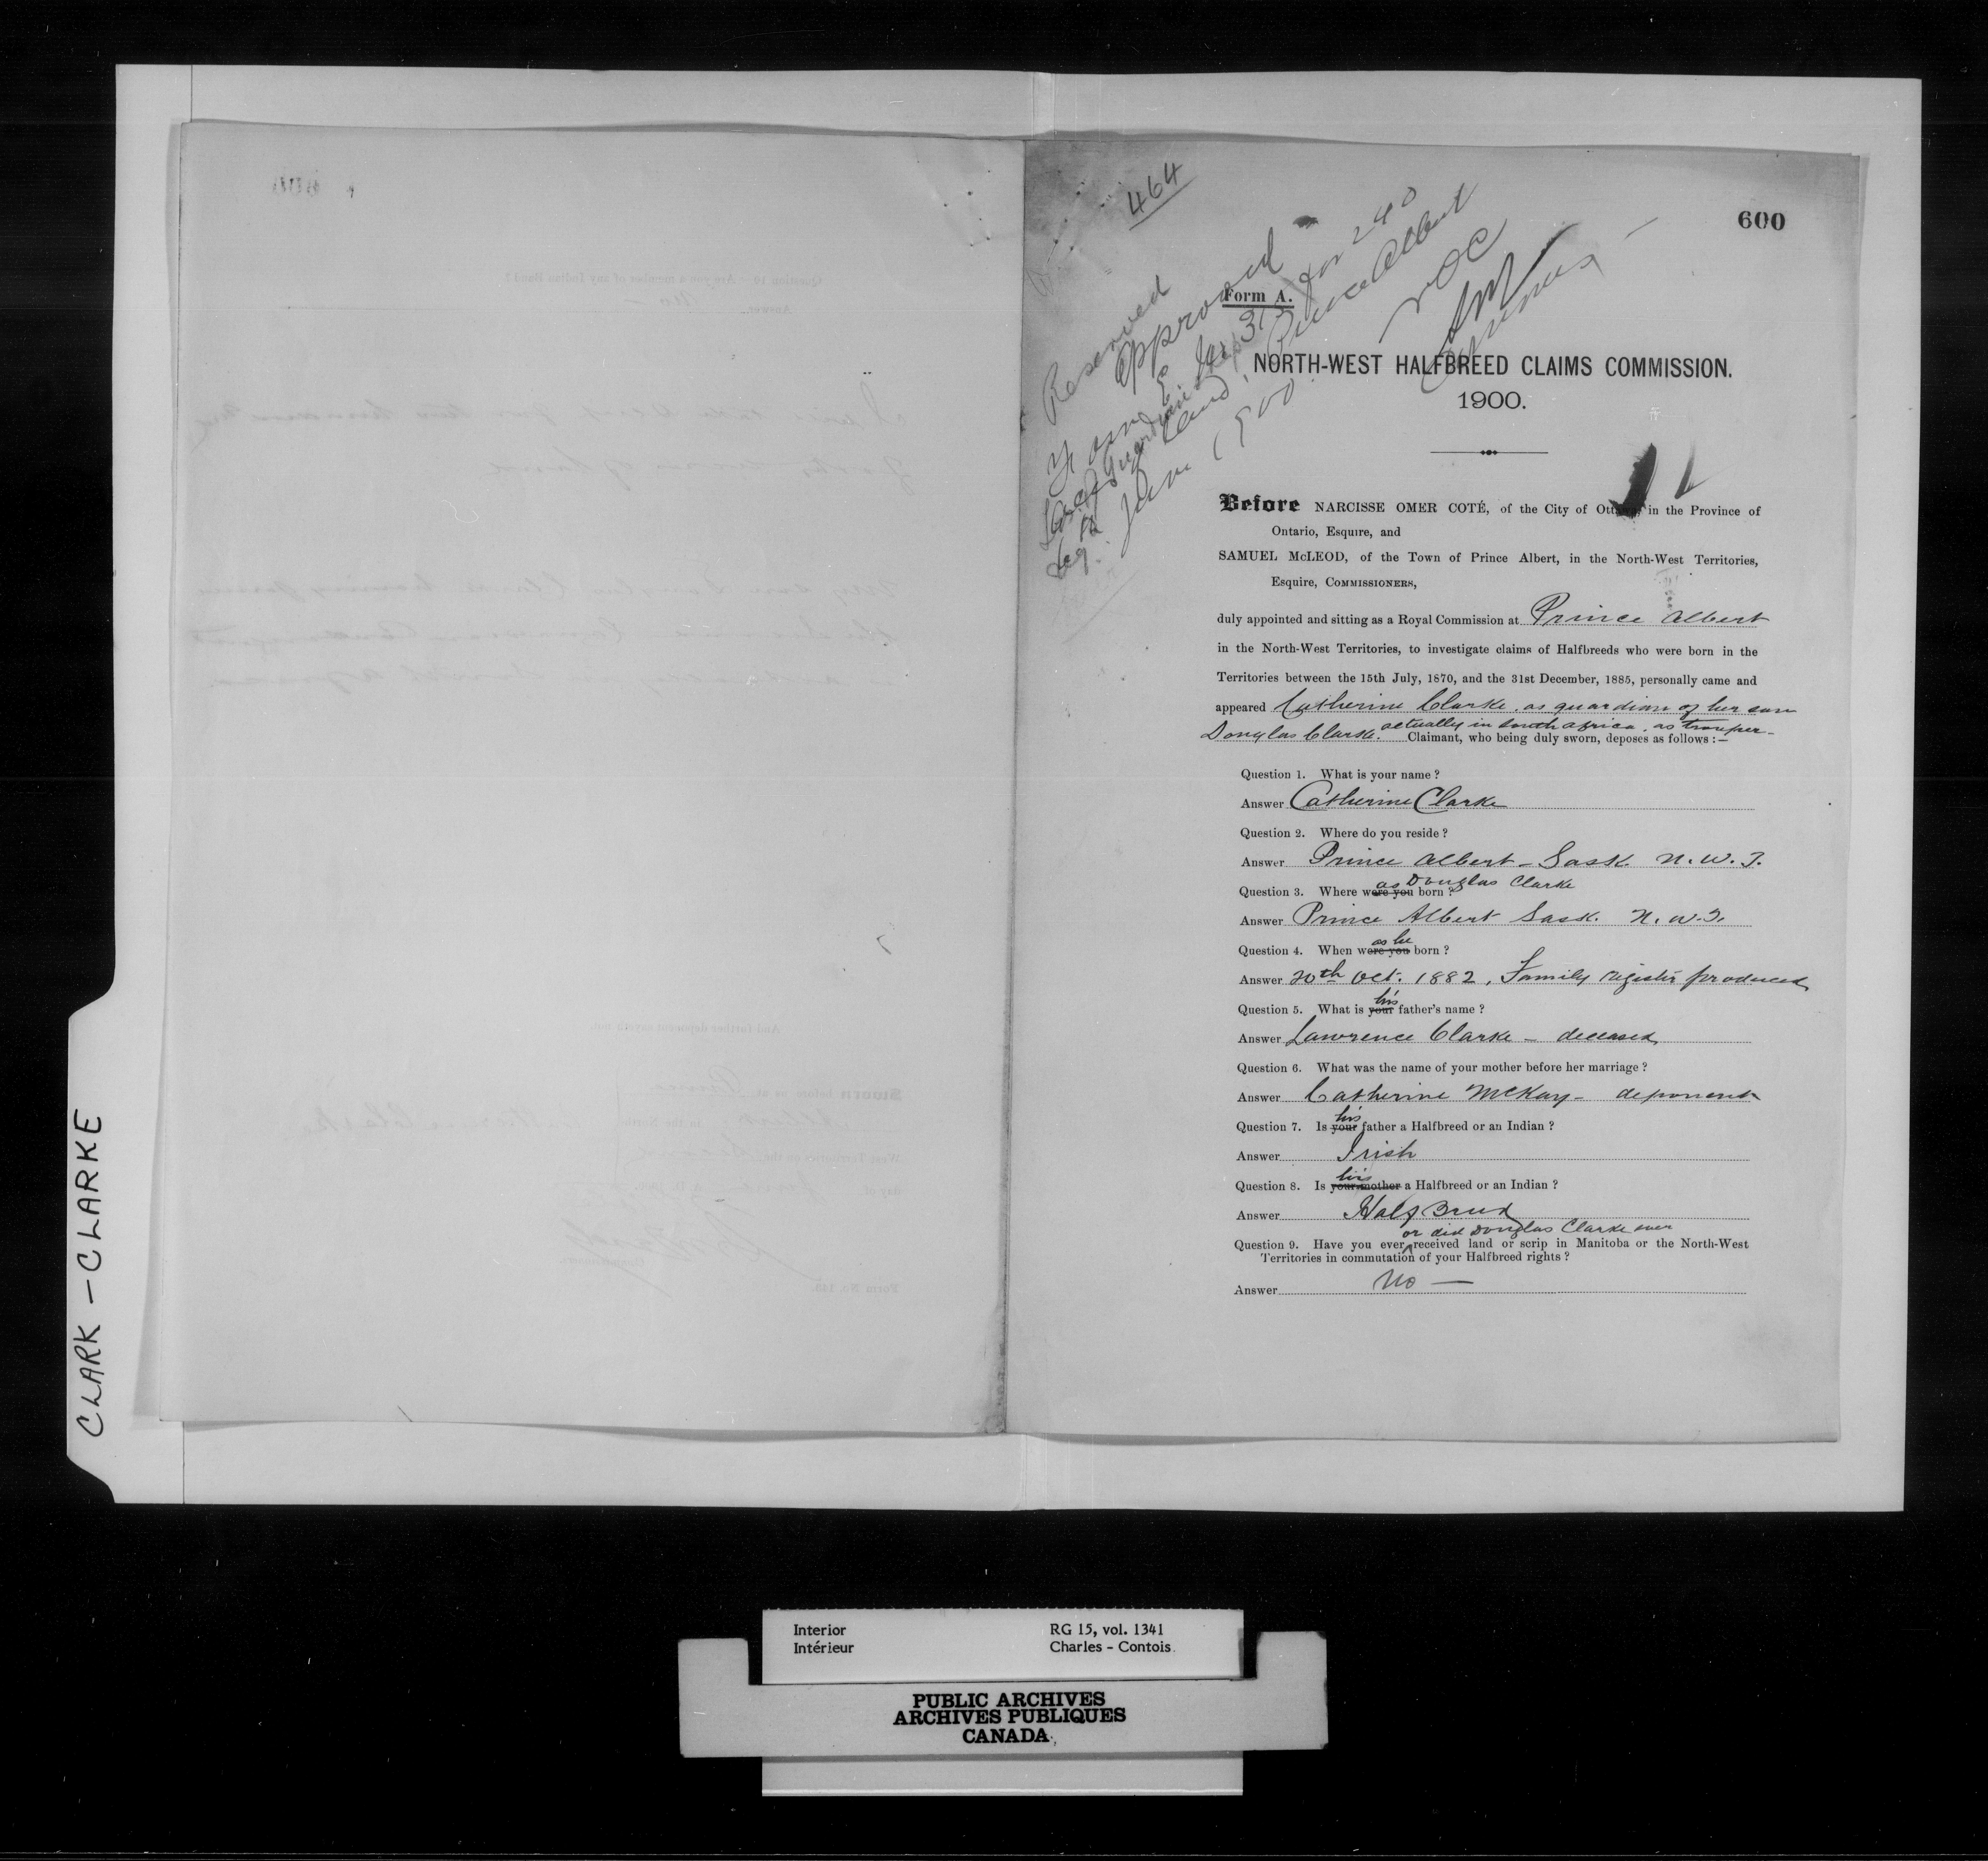 464
600
Reserved
Approved
Form A.
for 240
Prince Albert
NOC
June 1900
NORTH-WEST HALFBREED CLAIMS COMMISSION.
1900.
Before NARCISSE OMER COTÉ, of the City of Ottawa, in the Province of
Ontario, Esquire, and
SAMUEL McLEOD, of the Town of Prince Albert, in the North-West Territories,
Esquire, COMMISSIONERS,
duly appointed and sitting as a Royal Commission at Prince Albert
in the North-West Territories, to investigate claims of Halfbreeds who were born in the
Territories between the 15th July, 1870, and the 31st December, 1885, personally came and
appeared Catherine Clarke, as guardian of her son
Douglas Clarke. actually in South Africa, as trooper-
Claimant, who being duly sworn, deposes as follows :—
Question 1. What is your name ?
Answer Catherine Clarke
Question 2. Where do you reside ?
Answer Prince Albert - Sask. N. W. T.
as Douglas Clarke
Question 3. Where were you born ?
Answer Prince Albert Sask. N. W. T.
as he
Question 4. When were you born ?
Answer 20th Oct. 1882, Family register produced
his
Question 5. What is your father's name ?
Answer Lawrence Clarke - deceased
Question 6. What was the name of your mother before her marriage ?
Answer Catherine McKay - deponent
his
Question 7. Is your father a Halfbreed or an Indian ?
Answer Irish
his
Question 8. Is your mother a Halfbreed or an Indian ?
Answer Half Breed
or did Douglas Clarke ever
Question 9. Have you ever received land or scrip in Manitoba or the North-West
Territories in commutation of your Halfbreed rights ?
Answer No —
CLARK - CLARKE
Interior
Intérieur
RG 15, vol. 1341
Charles - Contois
PUBLIC ARCHIVES
ARCHIVES PUBLIQUES
CANADA